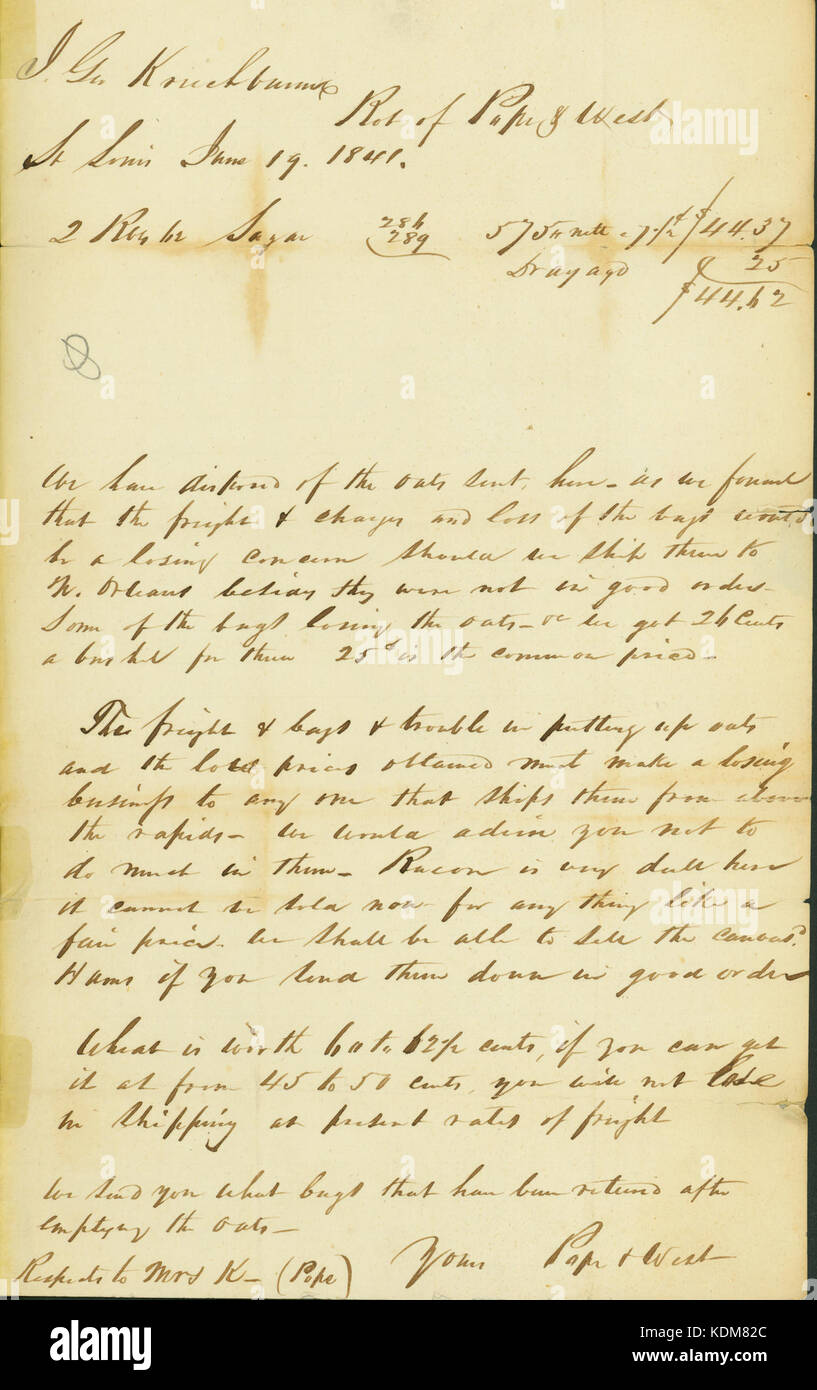 J. Geo Kriechbaum
Bot of Pope & West
St Louis June 19. 1841.
2 Sugar 286 575 nett 7 1/2 $44.37
289 Drayage 25
$44.62
We have disposed of the oats sent here - as we found
that the freight & charges and loss of the bags would
be a losing concern should we ship them to
N. Orleans besides they were not in good order
Some of the bags losing the oats - we got 26 Cents
a bushel for them 25c is the common price -
The freight & bags & trouble in putting up oats
and the low prices obtained must make a losing
business to any one that ships them from above
the rapids - We would advise you not to
do much in them - Bacon is very dull here
it cannot be sold now for any thing like a
fair price. We shall be able to sell the canvasd
Hams if you send them down in good order
Wheat is worth 60 to 62 1/2 cents, if you can get
it at from 45 to 50 cents, you will not lose
in shipping at present rates of freight
We send you what bags that have been retured after
emptying the oats -
Respects to Mrs K - (Pope) Yours Pope & West
alamy
a
KDM82C
www.alamy.com